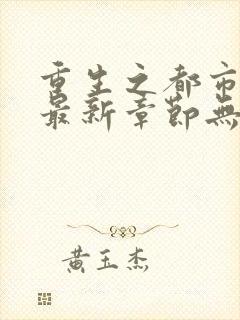 重生之都市
最新章節無
黃玉杰